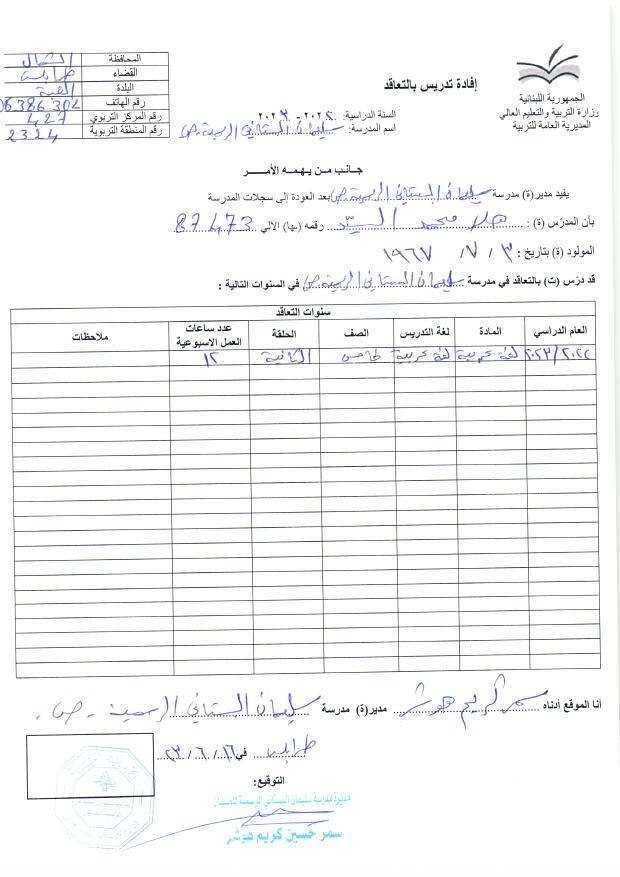 المحافظة الشمال
القضاء طرابلس
البلدة القبة
رقم الهاتف 06386304
رقم المركز التربوي 427
رقم المنطقة التربوية 2324
الجمهورية اللبنانية
وزارة التربية والتعليم العالي
المديرية العامة للتربية
إفادة تدريس بالتعاقد
السنة الدراسية: ٢٠٢٢ - ٢٠٢٣
اسم المدرسة: سليمان البستاني الرسمية ص.
جانب من يهمه الأمر
يفيد مدير(ة) مدرسة سليمان البستاني الرسمية ص بعد العودة إلى سجلات المدرسة
بأن المدرّس (ة) : هلا محمد السيّد رقمه (ـها) الآلي 87473
المولود (ة) بتاريخ : ٣ / ٧ / ١٩٦٧
قد درّس (ت) بالتعاقد في مدرسة سليمان البستاني الرسمية ص في السنوات التالية :
سنوات التعاقد
العام الدراسي المادة لغة التدريس الصف الحلقة عدد ساعات العمل الاسبوعية ملاحظات
٢٠٢٣/٢٠٢٢ لغة عربية لغة عربية خامس الثانية ١٢
أنا الموقع أدناه سمر كريم هوشر مدير(ة) مدرسة سليمان البستاني الرسمية - ص.
طرابلس في ١٦ / ٦ / ٢٣
التوقيع:
مديرة مدرسة سليمان البستاني الرسمية للصبيان
سمر حسين كريم هوشر